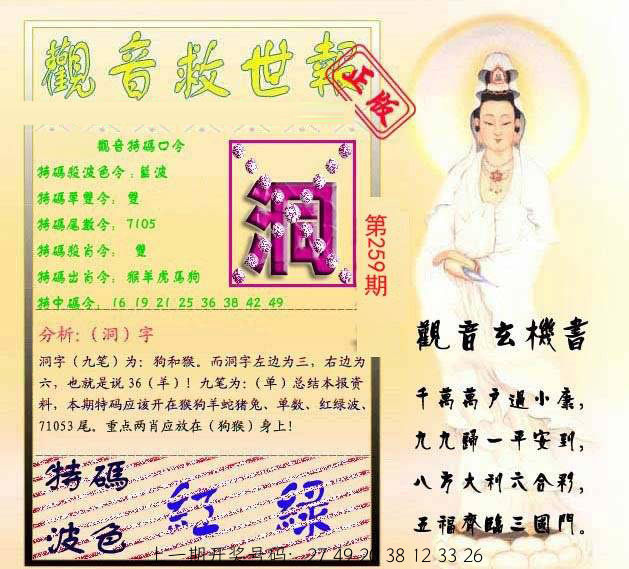 觀音救世報
正版
觀音特碼口令
特碼殺波色令：藍波
特碼單雙令： 雙
特碼尾數令： 7105
特碼殺肖令： 雙
特碼出肖令： 猴羊虎馬狗
特中碼令： 16 19 21 25 36 38 42 49
洞
第259期
分析：（洞）字
洞字（九笔）为：狗和猴。而洞字左边为三，右边为
六，也就是说 36（羊）！九笔为：（单）总结本报资
料，本期特码应该开在猴狗羊蛇猪兔、单数、红绿波、
71053 尾。重点两肖应放在（狗猴）身上！
特碼
波色
紅 綠
上一期开奖号码: 27 49 20 38 12 33 26
觀音玄機書
千萬萬戶過小康，
九九歸一平安到，
八方大利六合彩，
五福齊臨三國門。